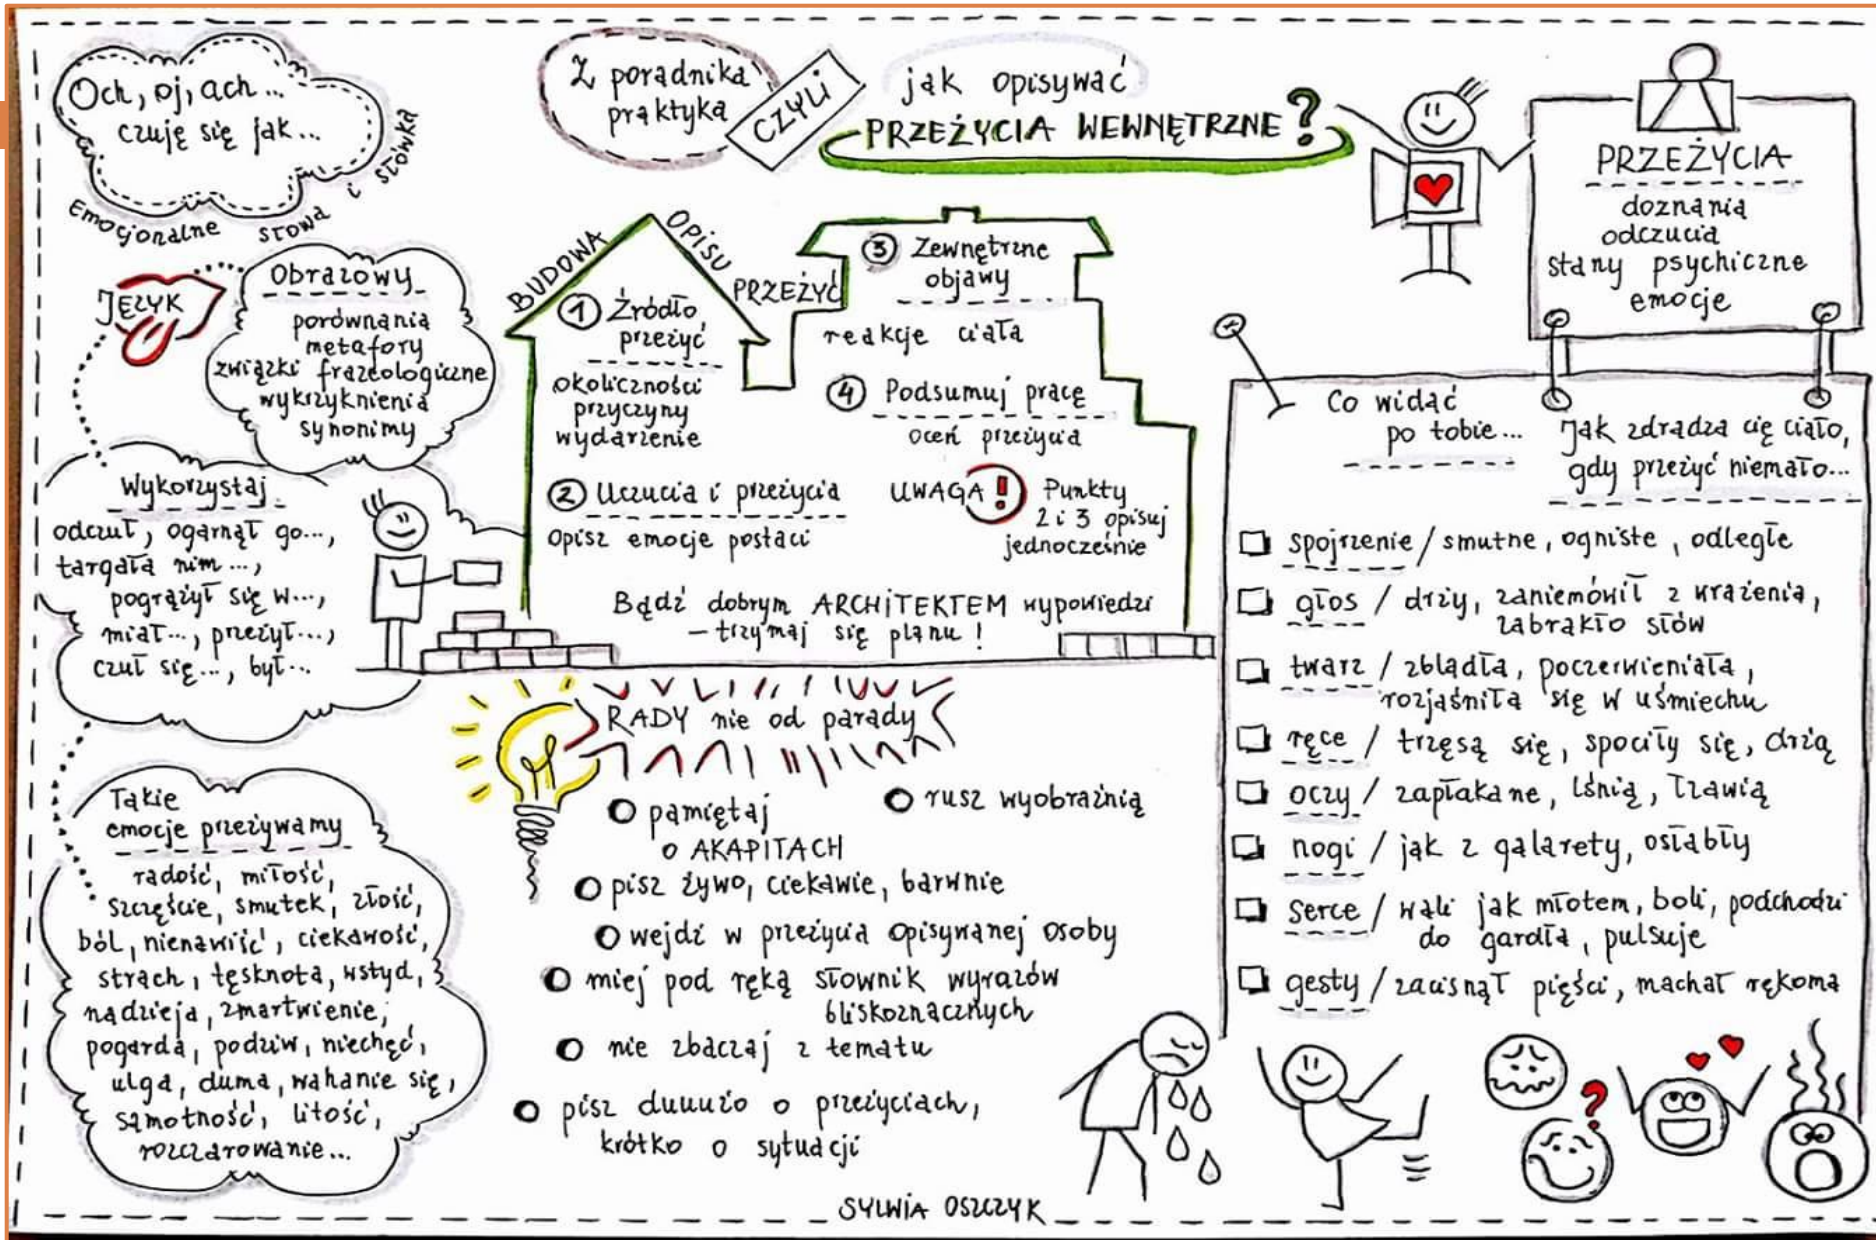 Z poradnika
praktyka
CZYLI
jak opisywać
PRZEŻYCIA WEWNĘTRZNE?
Och, oj, ach...
czuję się jak...
Emocjonalne słowa i słówka
JĘZYK
Obrazowy
porównania
metafory
związki frazeologiczne
wykrzyknienia
synonimy
Wykorzystaj
odczuł, ogarnął go...,
targała nim...,
pogrążył się w...,
miał..., przeżył...,
czuł się..., był...
Takie
emocje przeżywamy
radość, miłość,
szczęście, smutek, złość,
ból, nienawiść, ciekawość,
strach, tęsknota, wstyd,
nadzieja, zmartwienie,
pogarda, podziw, niechęć,
ulga, duma, wahanie się,
samotność, litość,
rozczarowanie...
BUDOWA OPISU PRZEŻYĆ
1 Źródło
przeżyć
okoliczności
przyczyny
wydarzenie
2 Uczucia i przeżycia
Opisz emocje postaci
3 Zewnętrzne
objawy
reakcje ciała
4 Podsumuj pracę
oceń przeżycia
UWAGA! Punkty
2 i 3 opisuj
jednocześnie
Bądź dobrym ARCHITEKTEM wypowiedzi
– trzymaj się planu!
RADY nie od parady
pamiętaj
o AKAPITACH
rusz wyobraźnią
pisz żywo, ciekawie, barwnie
wejdź w przeżycia opisywanej osoby
miej pod ręką słownik wyrazów
bliskoznacznych
nie zbaczaj z tematu
pisz duuużo o przeżyciach,
krótko o sytuacji
PRZEŻYCIA
doznania
odczucia
stany psychiczne
emocje
Co widać
po tobie...
Jak zdradza cię ciało,
gdy przeżyć niemało...
spojrzenie / smutne, ogniste, odległe
głos / drży, zaniemówił z wrażenia,
zabrakło słów
twarz / zbladła, poczerwieniała,
rozjaśniła się w uśmiechu
ręce / trzęsą się, spociły się, drżą
oczy / zapłakane, lśnią, łzawią
nogi / jak z galarety, osłabły
serce / wali jak młotem, boli, podchodzi
do gardła, pulsuje
gesty / zacisnął pięści, machał rękoma
?
SYLWIA OSZCZYK